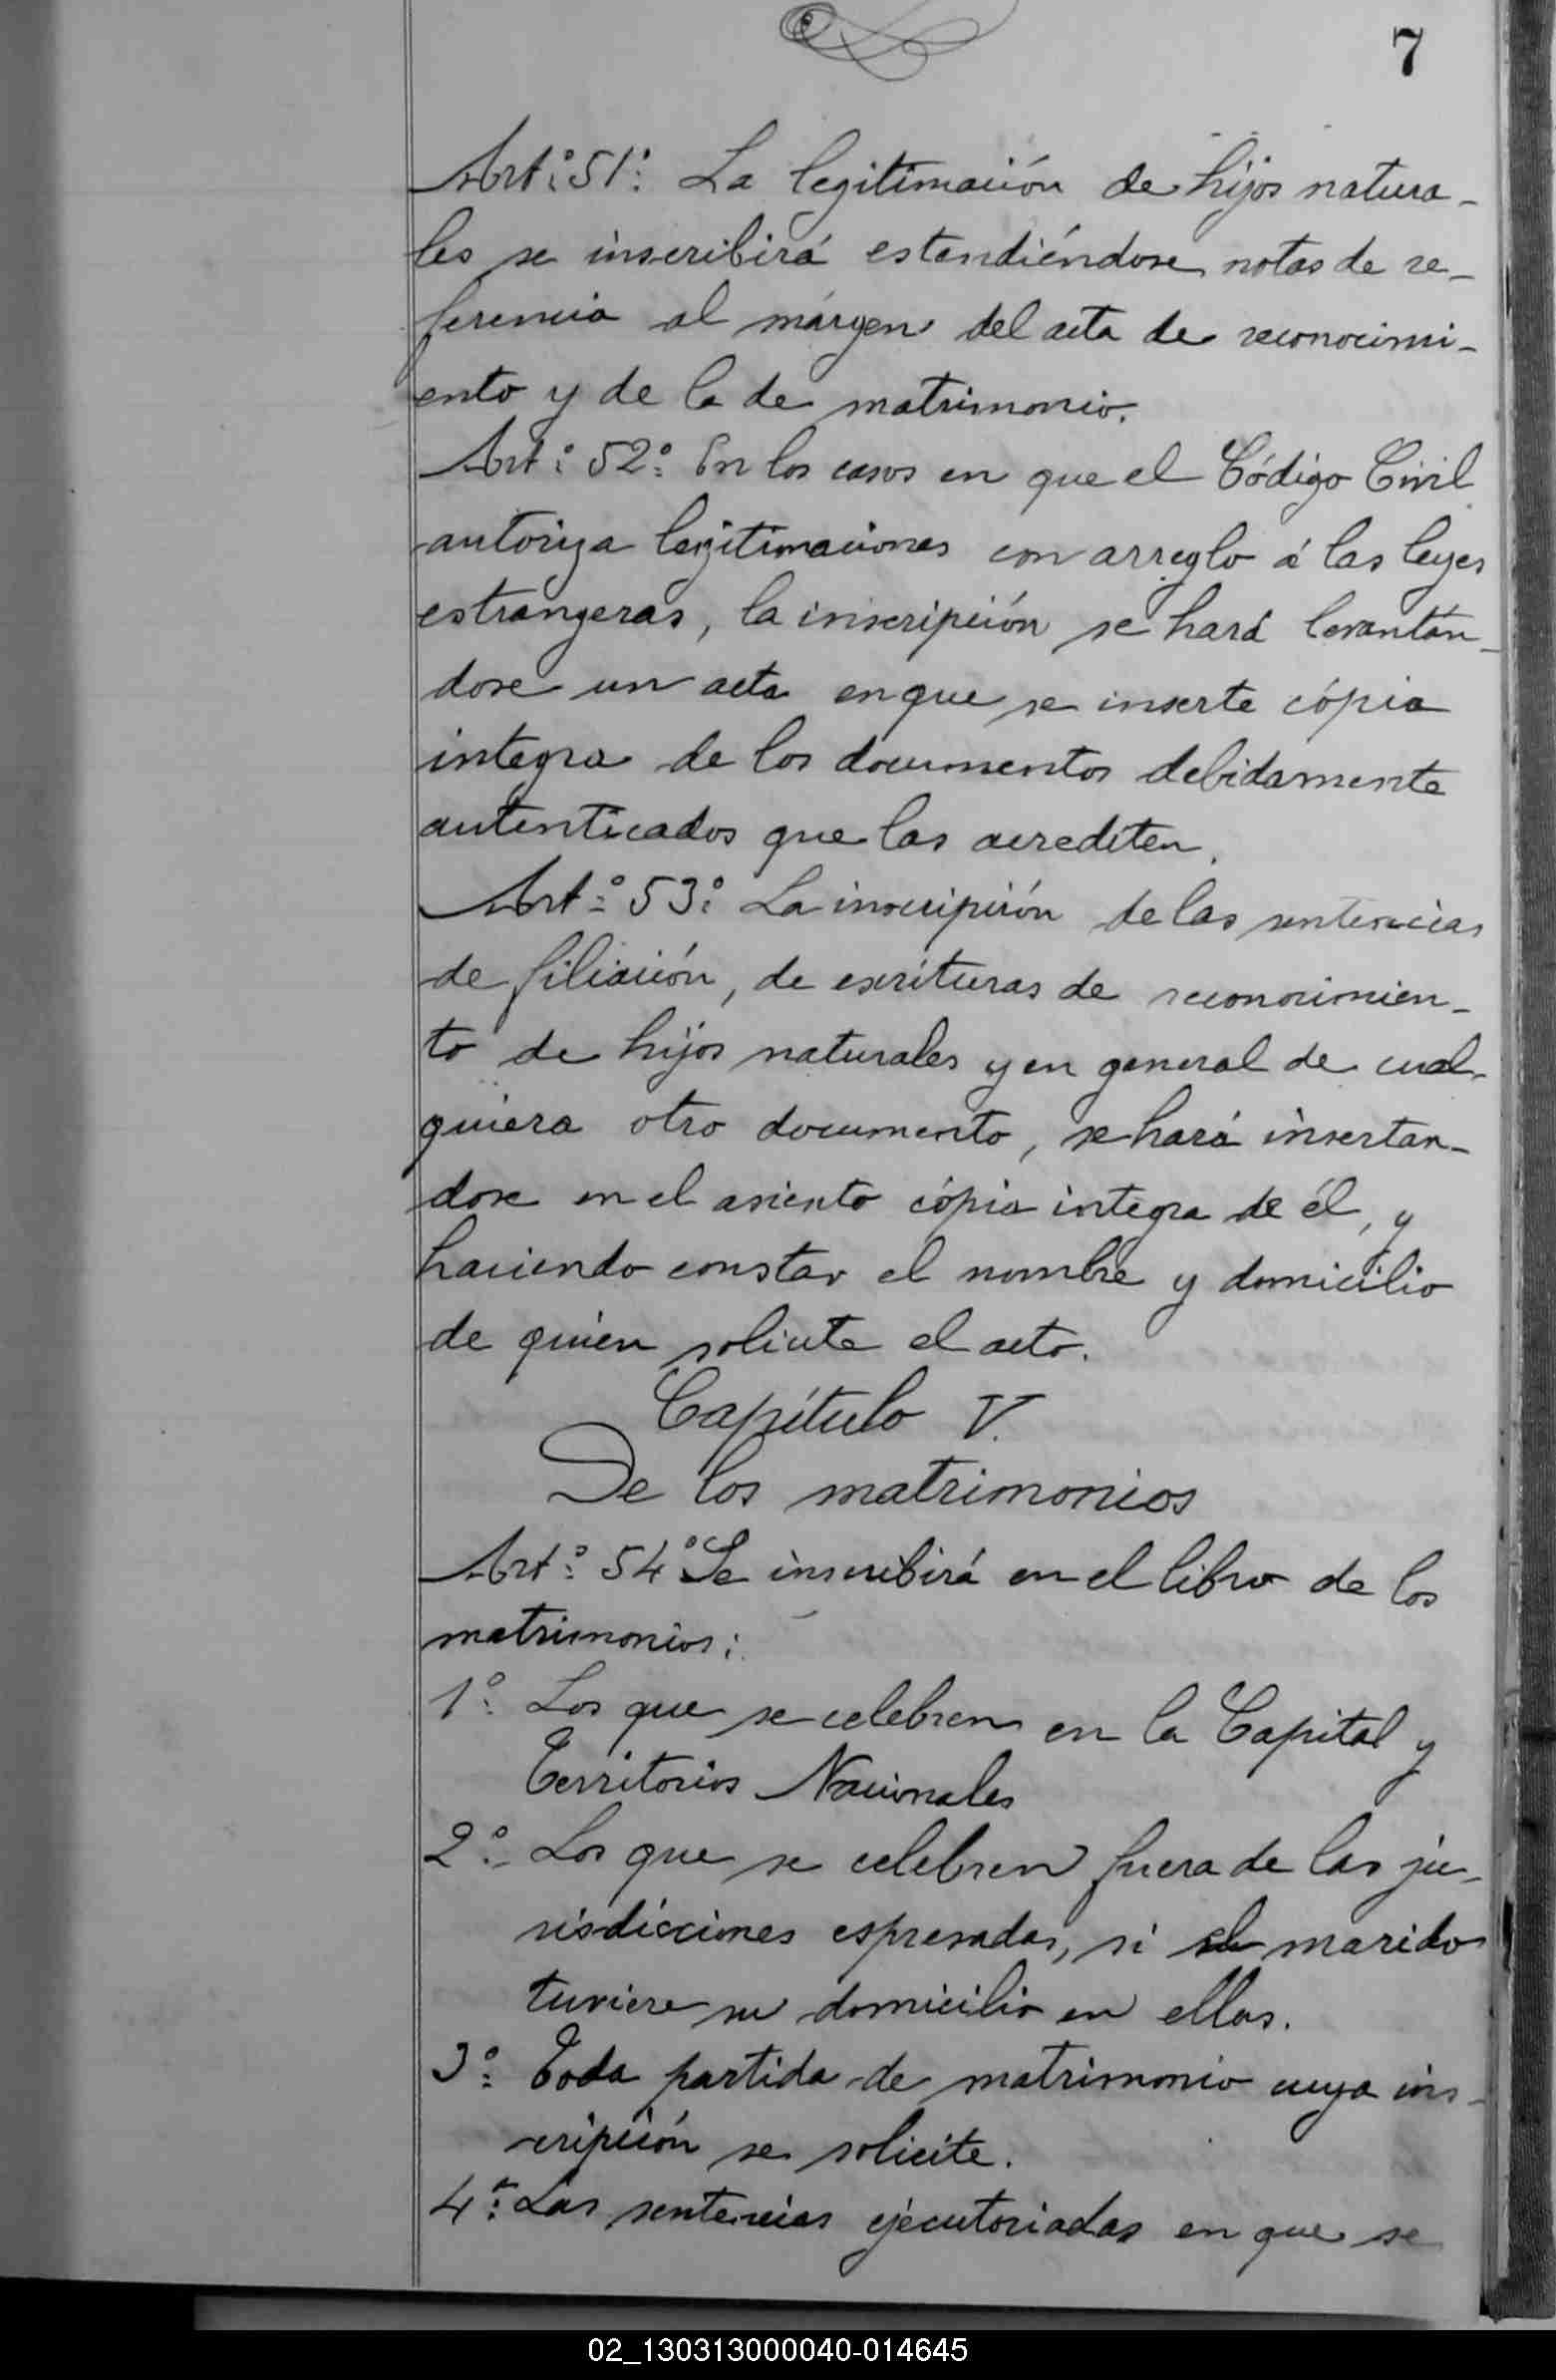 7
Art.º 51º. La legitimación de hijos natura-
les se inscribirá estendiéndose notas de re-
ferencia al márgen del acta de reconocimi-
ento y de la de matrimonio.
Art.º 52º. En los casos en que el Código Civil
autoriza legitimaciones con arreglo á las leyes
estrangeras, la inscripción se hará levantán-
dose un acta en que se inserte cópia
integra de los documentos debidamente
autenticados que las acrediten.
Art.º 53º. La inscripción de las sentencias
de filiación, de escrituras de reconocimien-
to de hijos naturales y en general de cual-
quiera otro documento, se hará insertan-
dose en el asiento cópia integra de él, y
haciendo constar el nombre y domicilio
de quien solicite el acto.
Capítulo V.
De los matrimonios
Art.º 54º Se inscribirá en el libro de los
matrimonios:
1º. Los que se celebren en la Capital y
Territorios Nacionales
2º. Los que se celebren fuera de las ju-
risdicciones espresadas, si el marido
tuviere su domicilio en ellas.
3º. Toda partida de matrimonio cuya ins-
cripción se solicite.
4º. Las sentencias ejecutoriadas en que se
02_130313000040-014645